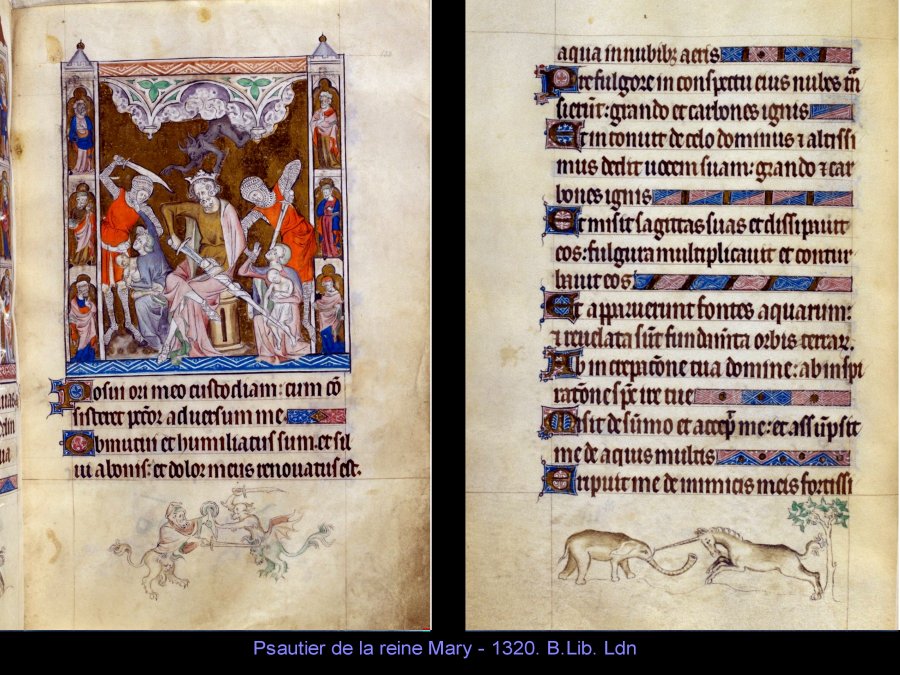 Posui ori meo custodiam: cum cō
sisteret pctōr aduersum me
Obmutui et humiliatus sum. et sil
ui a bonis: et dolor meus renouatus est.
aqua in nubibꝫ aeris
Pre fulgore in conspectu eius nubes trā
sierūt: grando et carbones ignis
Et intonuit de celo dominus ⁊ altissi
mus dedit uocem suam: grando ⁊ car
bones ignis
Et misit sagittas suas et dissipauit
eos: fulgura multiplicauit et contur
bauit eos
Et apparuerunt fontes aquarum:
⁊ reuelata sūt fundam̄ta orbis terrar.
Ab increpacōne tua domine: ab inspi
racōne sp̄c ire tue
Misit de sūmo et accep̄ me: et assūpsit
me de aquis multis
Eripuit me de inimicis meis fortissi
Psautier de la reine Mary - 1320. B.Lib. Ldn